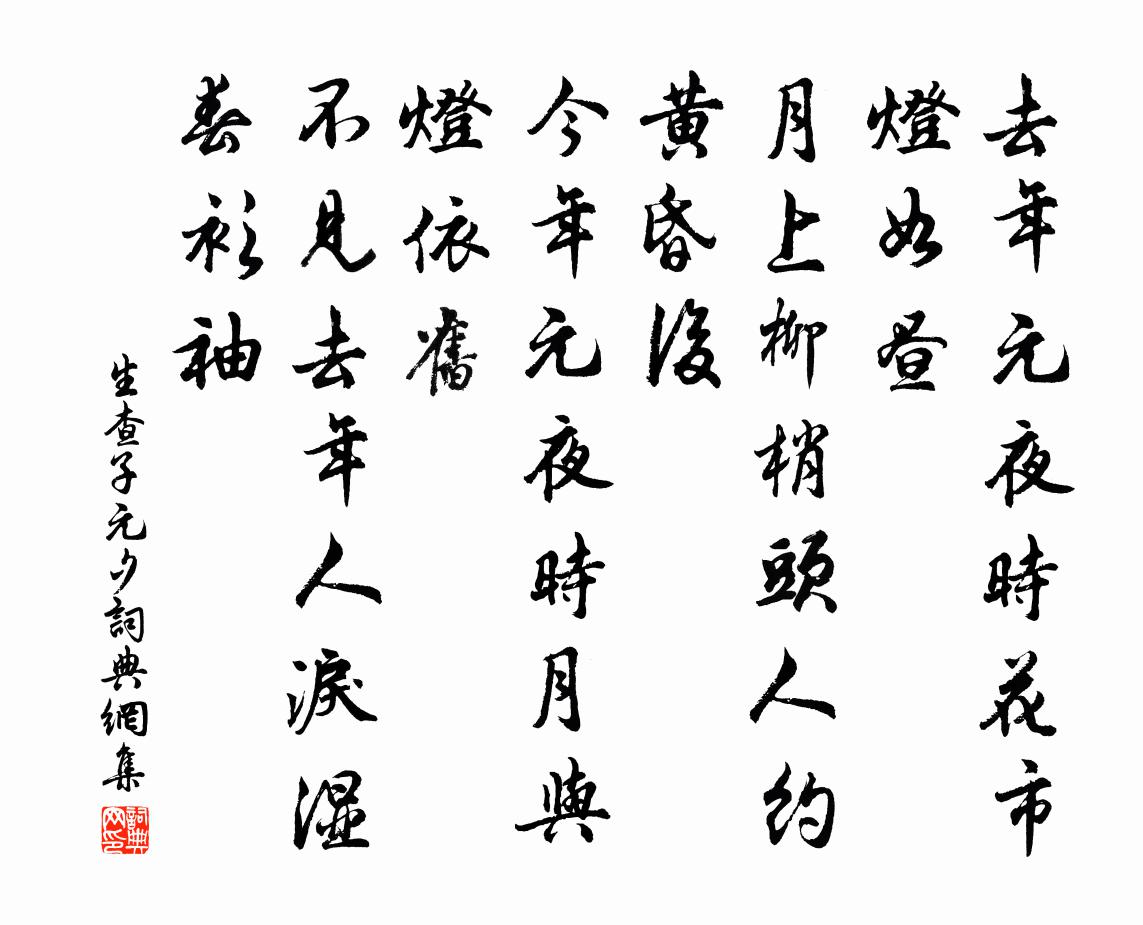 去年元夜時花市
燈如晝
月上柳梢頭人約
黃昏後
今年元夜時月與
燈依舊
不見去年人淚濕
春衫袖
生查子元夕詞典網集
詞典
网印